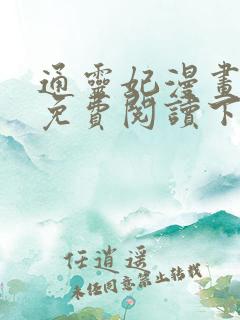 通靈妃漫畫
免費閱讀下
任逍遥
未经同意禁止转载